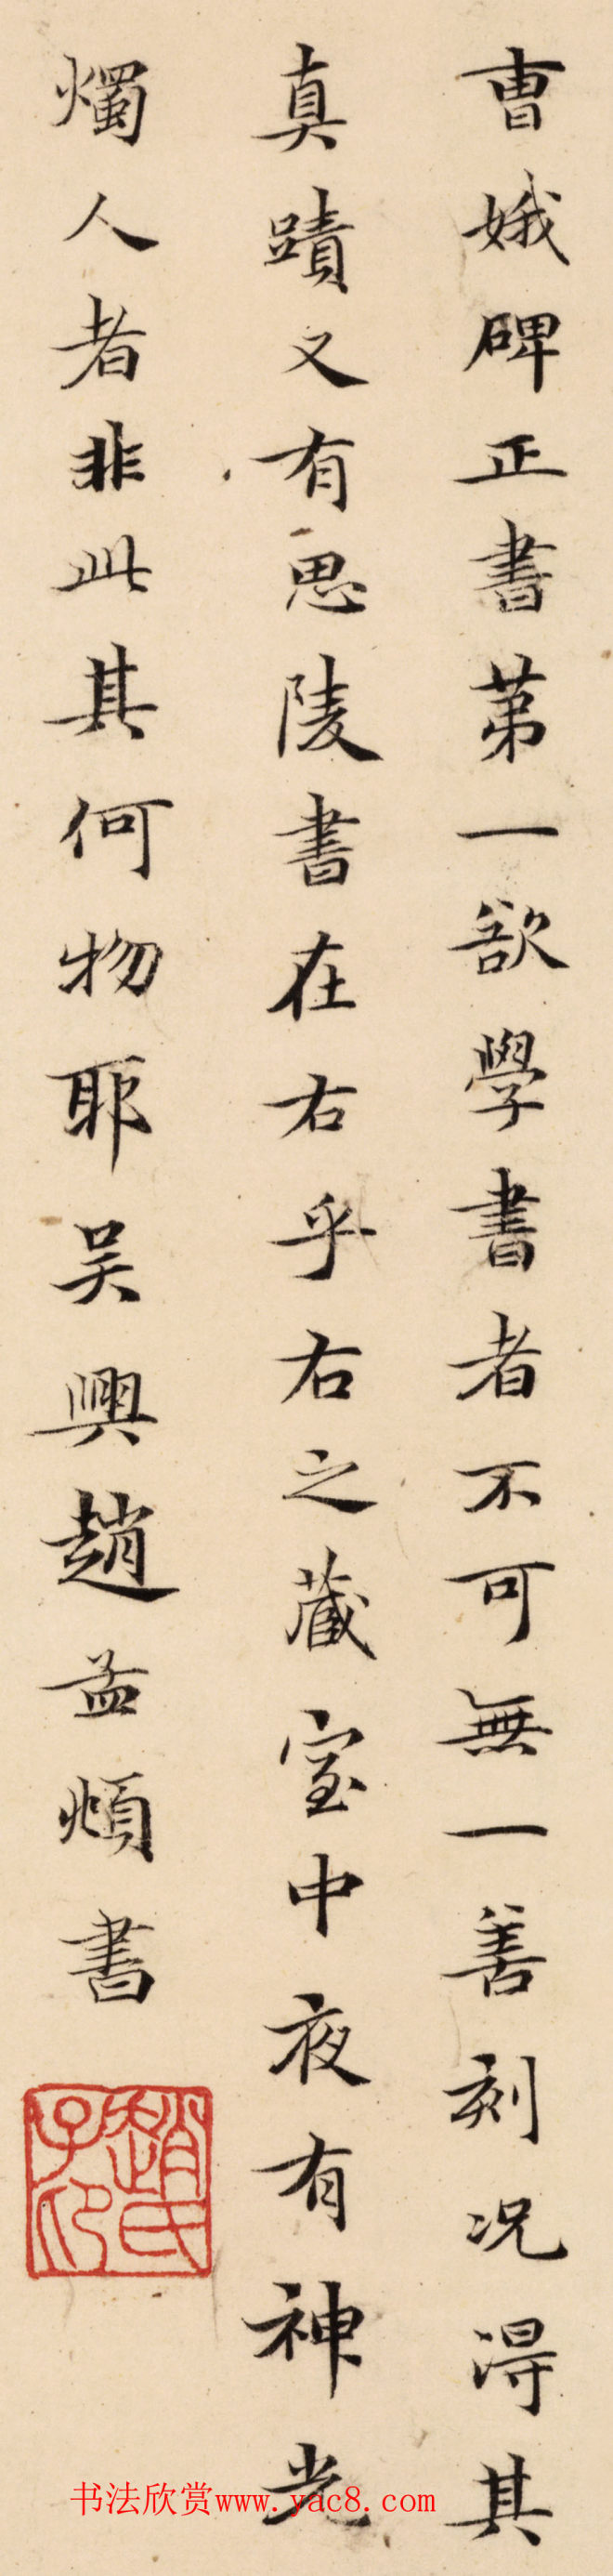 曺娥碑正書苐一欲學書者不可無一善刻况淂其
真蹟又有思陵書在右乎右之蔵室中夜有神光
燭人者非此其何物耶吴興趙孟頫書
趙氏子印
书法欣赏www.yac8.com